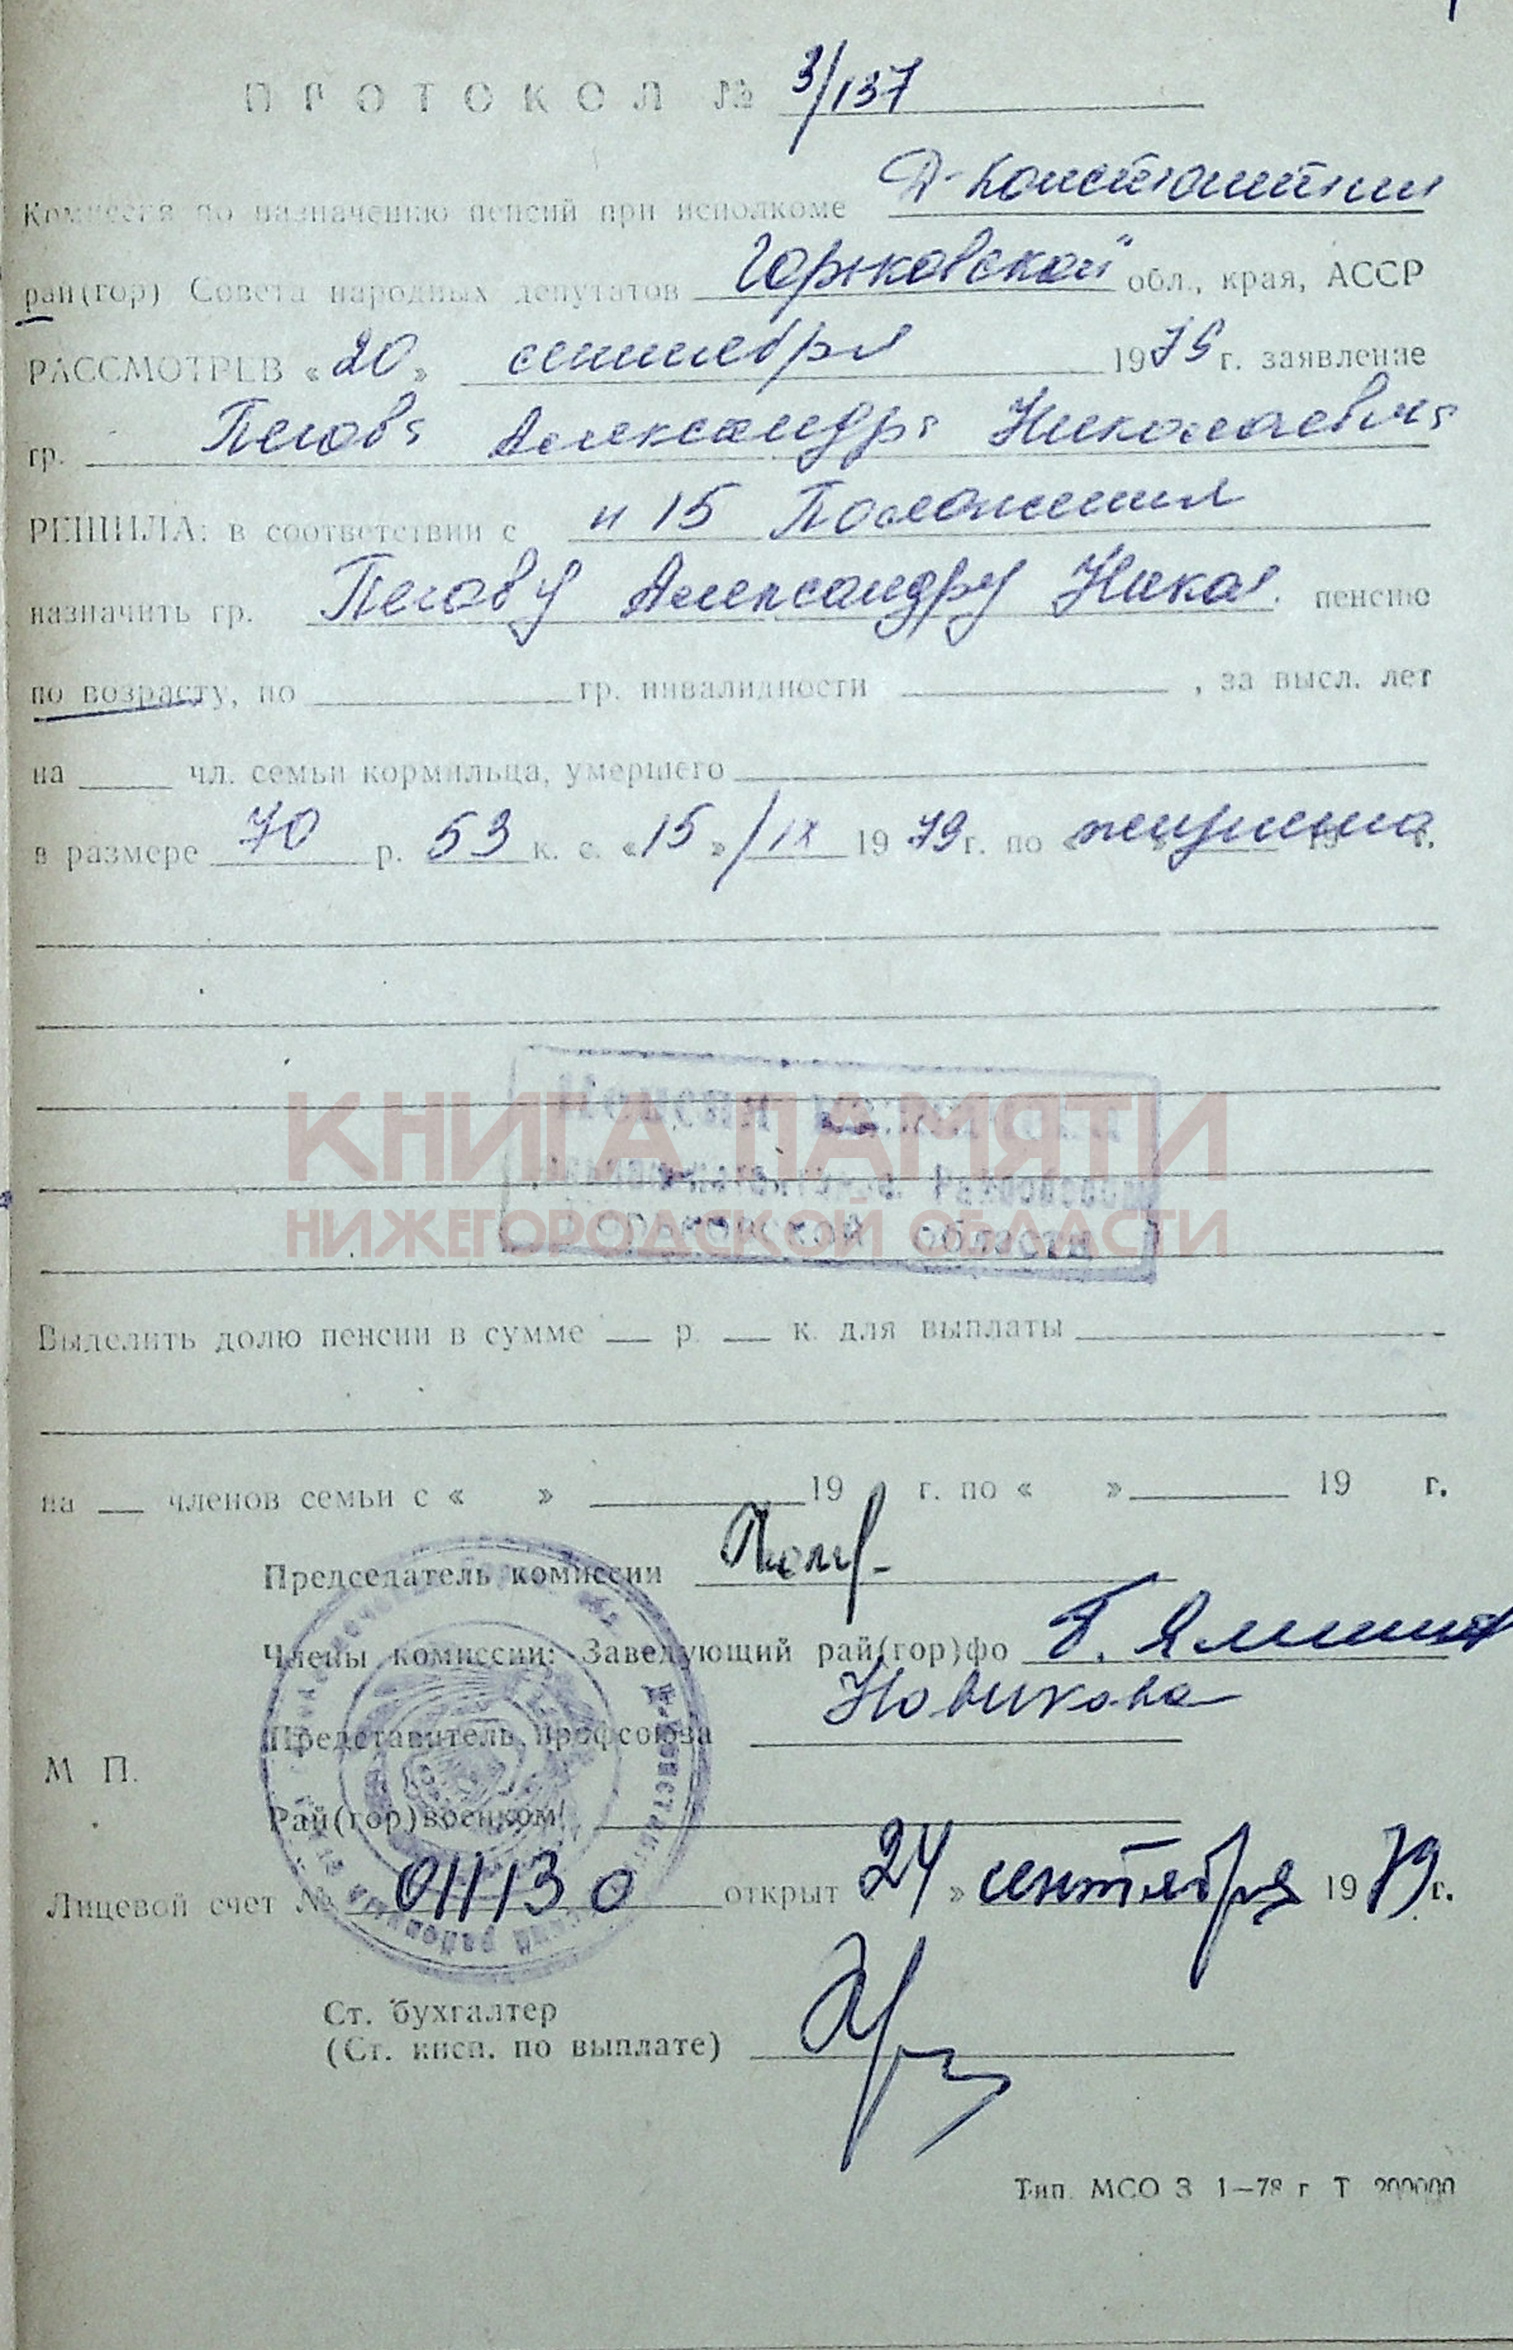 ПРОТОКОЛ № 3/137
Комиссия по назначению пенсий при исполкоме Д-Константин
рай(гор) Совета народных депутатов Горьковской обл., края, АССР
РАССМОТРЕВ «20» сентября 1979 г. заявление
гр. Пегова Александра Николаевича
РЕШИЛА: в соответствии с п 15 Положения
назначить гр. Пегову Александру Никол. пенсию
по возрасту, по гр. инвалидности , за высл. лет
на чл. семьи кормильца, умершего
в размере 70 р. 53 к. с. «15» /IX 1979 г. по « пожизненно 19 г.
КНИГА ПАМЯТИ
НИЖЕГОРОДСКОЙ ОБЛАСТИ
Горьковской области
Выделить долю пенсии в сумме р. к. для выплаты
на членов семьи с « » 19 г. по « » 19 г.
Председатель комиссии
Члены комиссии: Заведующий рай(гор)фо
Новикова
Представитель профсоюза
М П.
Рай(гор)военком
Лицевой счет № 011130 открыт 24 » сентября 1979 г.
Ст. бухгалтер
(Ст. инсп. по выплате)
Тип. МСО З 1—78 г Т 200000